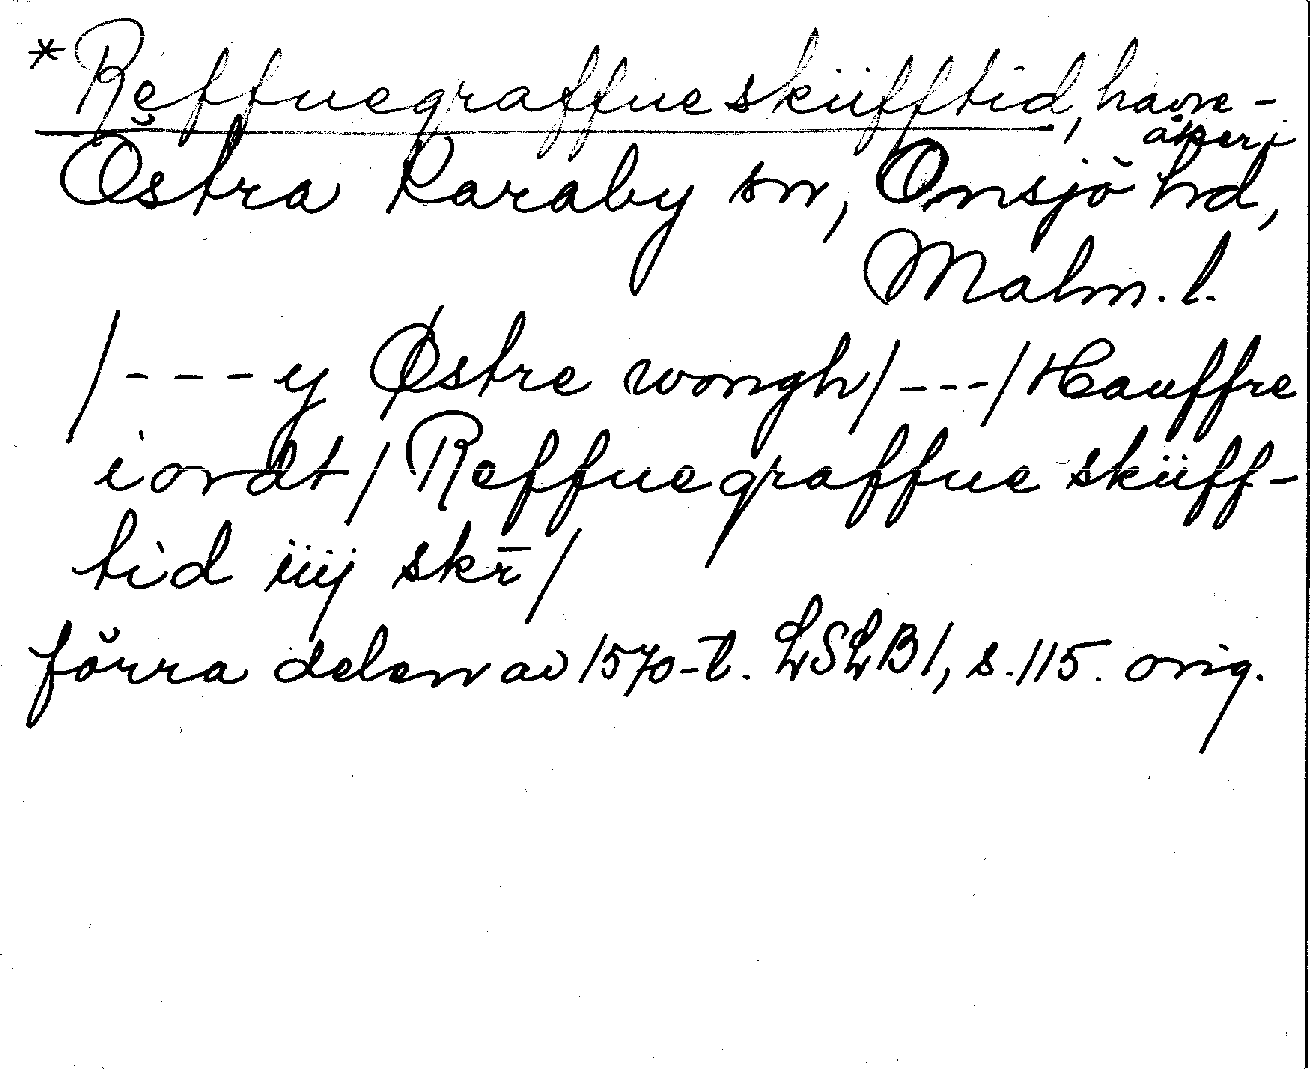 *Reffuegraffue sküfftid, havre-
åker i
Östra Karaby sn, Onsjö hd,
Malm. l.
/---y Østre wongh/---/Hauffre
iordt/Reffuegraffue sküff-
tid iiij skr̄/
förra delen av 1570-t. LSLB1, s. 115. orig.